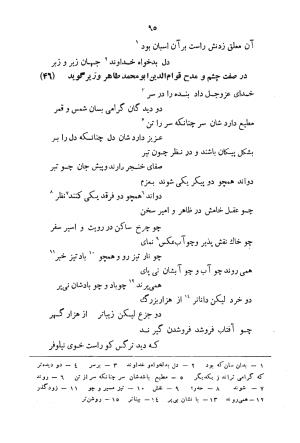 ۹۵
آن معلق زدنش راست بر آن اسبان بود ۱
دل بدخواه خداوند ۲ جهان زیر و زبر
در صفت چشم و مدح قوام‌الدین ابو محمد طاهر وزیر گوید (۴۶)
خدای عزوجل داد بنده را در سر ۳
دو دیدگان گرامی بسان شمس و قمر
مطیع دارد شان سر چنانکه سر را تن ۵
عزیز دارد شان دل چنانکه دل را بر
بشکل پیکان باشند و در نظر چون تیر
صفای خنجر دارند و پیش جان چو تبر
دواند همچو دو پیکر یکی شوند بعزم
دواند همچو دو فرقد یکی کنند ۷ نظر ۸
چو عقل خامش در ظاهر و امیر سخن
چو چرخ ساکن در رویت و اسیر سفر
چو خاك نقش پذیر و چو آب عکس ۹ نمای
چو نار تیز رو و همچو ۱۰ باد تیز خبر ۱۱
همی روند چو آب و چو آبشان نی پای
همی پرند ۱۲ چو باد و چو بادشان نی پر
دو خرد لیکن داناتر ۱۴ از هزار بزرگ
دو جزع لیکن زیباتر از هزار گهر
چو آفتاب فروشد فروشدن گیرند
که دید نرگس کو راست خوی نیلوفر
۱ – بدان سان که بود ۲ – دل بدخواه خداوند ۳ – بر سر ۴ – دو دیده تر
۵ – مطیع باشدشان سر چنانکه سر از تن ۶ – روند
۷ – شوند ۸ – ۹ – نقش ۱۰ – تیز مسیر و چو ۱۱ – زود گذر
۱۲ – همی‌روند ۱۳ – با نشان بی‌پر ۱۴ – بیناتر ۱۵ – روشن‌تر